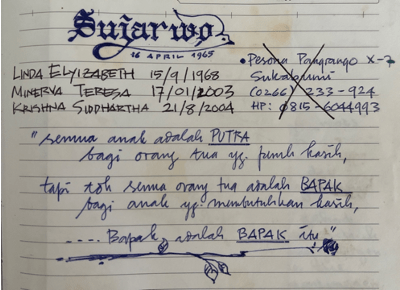 Sujarwo
16 APRIL 1965
• Pesona Pangrango X-7
Sukabumi
(0266) 233-924
HP: 0815-6044993
LINDA ELYIZABETH 15/9/1968
MINERVA TERESA 17/01/2003
KRISHNA SIDDHARTHA 21/8/2004
"semua anak adalah PUTRA
bagi orang tua yg. penuh kasih,
tapi toh semua orang tua adalah BAPAK
bagi anak yg. membutuhkan kasih,
..... Bapak adalah BAPAK itu"